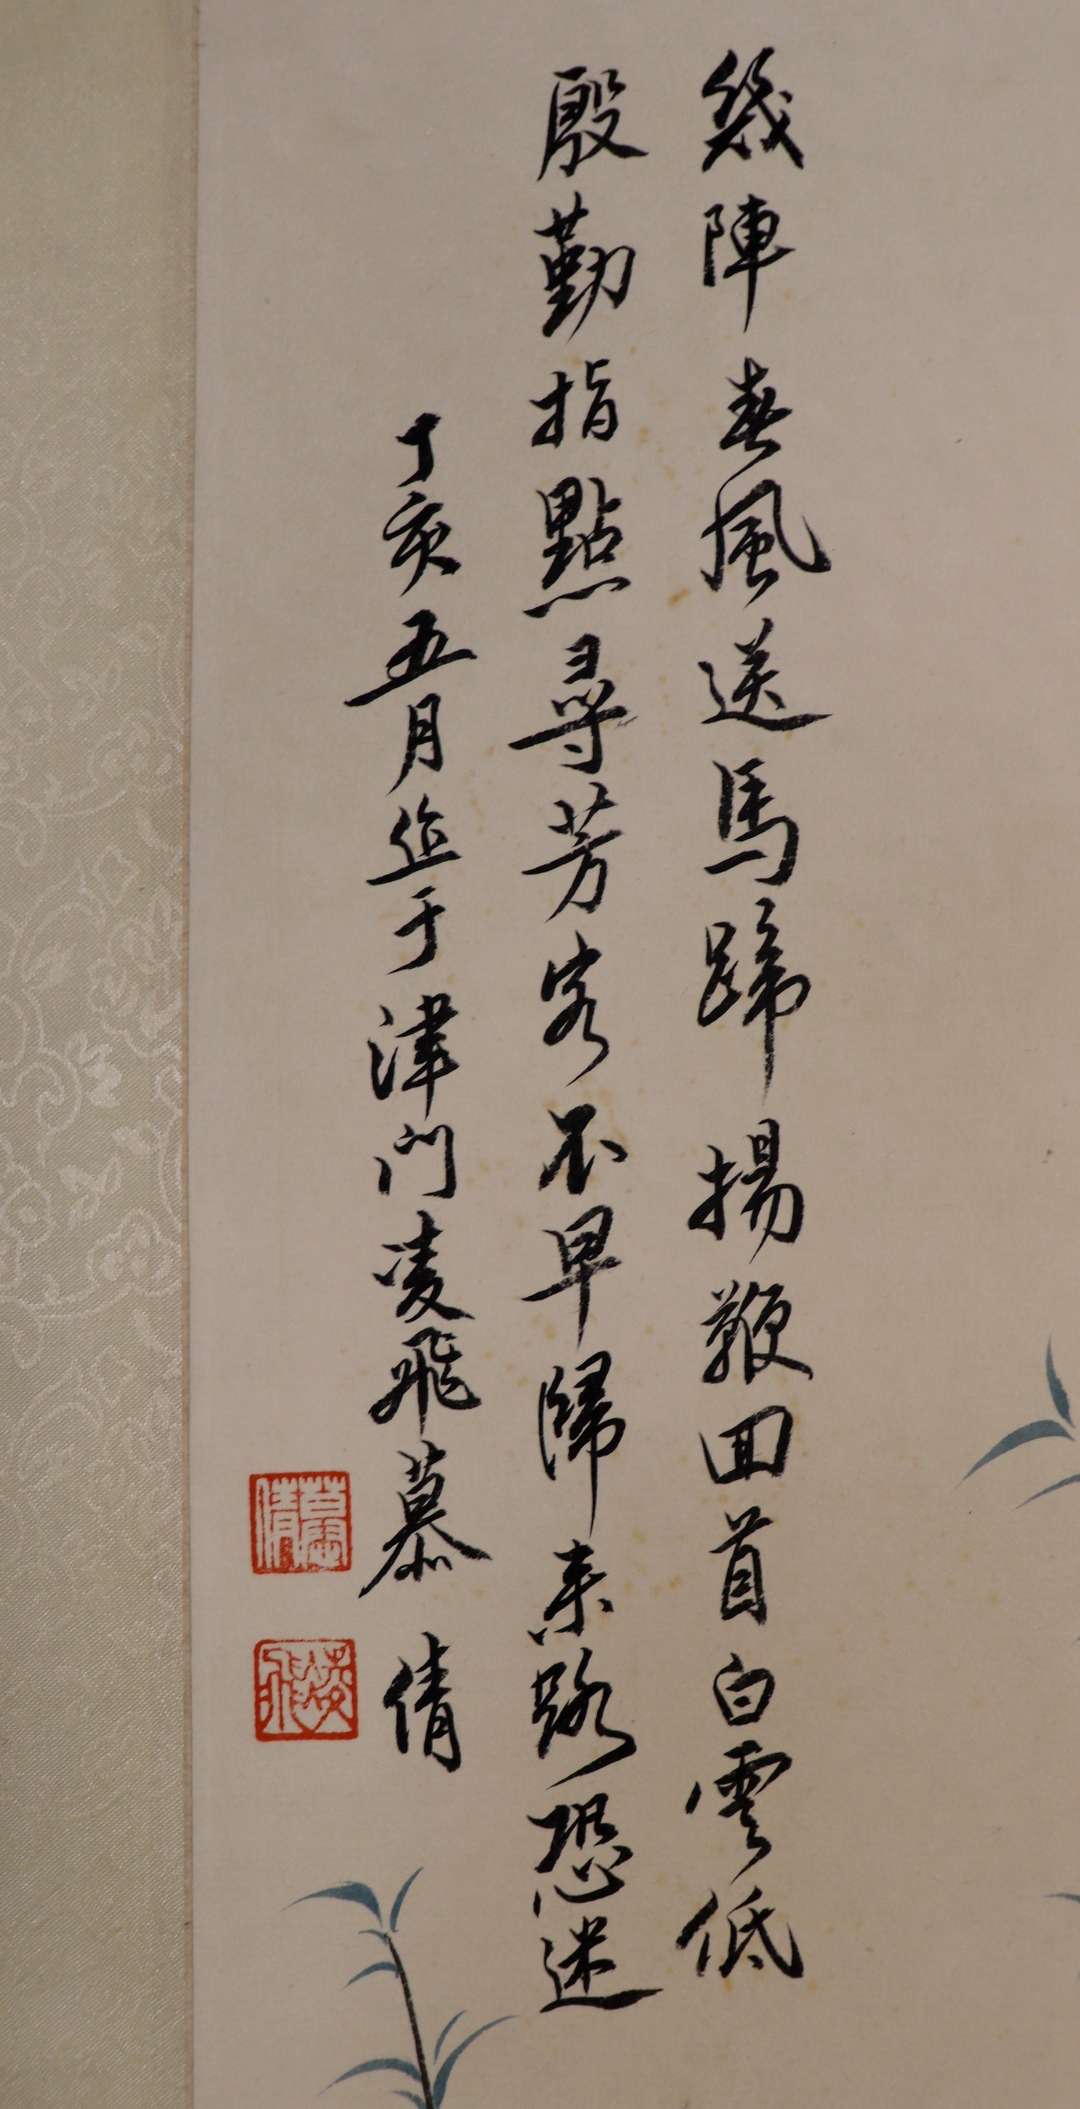 幾陣春風送馬蹄揚鞭回首白雲低
殷勤指點尋芳客不早歸來路恐迷
丁亥五月作于津門凌飛慕倩
慕倩
凌飛